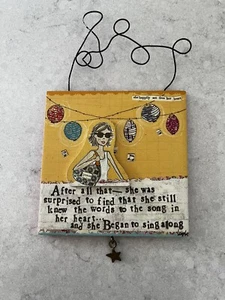 After all that— she was
surprised to find that she still
knew the words to the song in
her heart...
and she Began to sing along